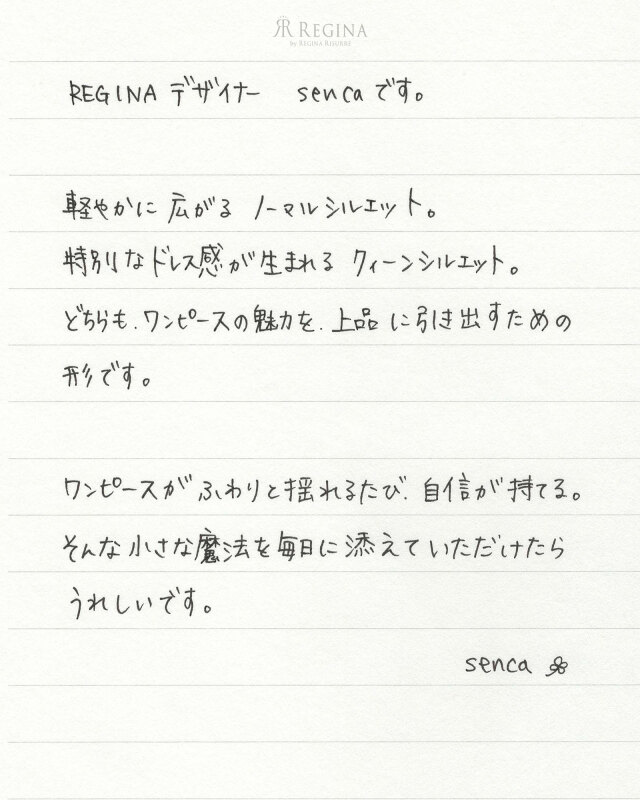 REGINA
by REGINA RISURRE
REGINA デザイナー senca です。
軽やかに広がる ノーマルシルエット。
特別なドレス感が生まれる クィーンシルエット。
どちらも、ワンピースの魅力を、上品に引き出すための
形です。
ワンピースがふわりと揺れるたび、自信が持てる。
そんな小さな魔法を毎日に添えていただけたら
うれしいです。
senca